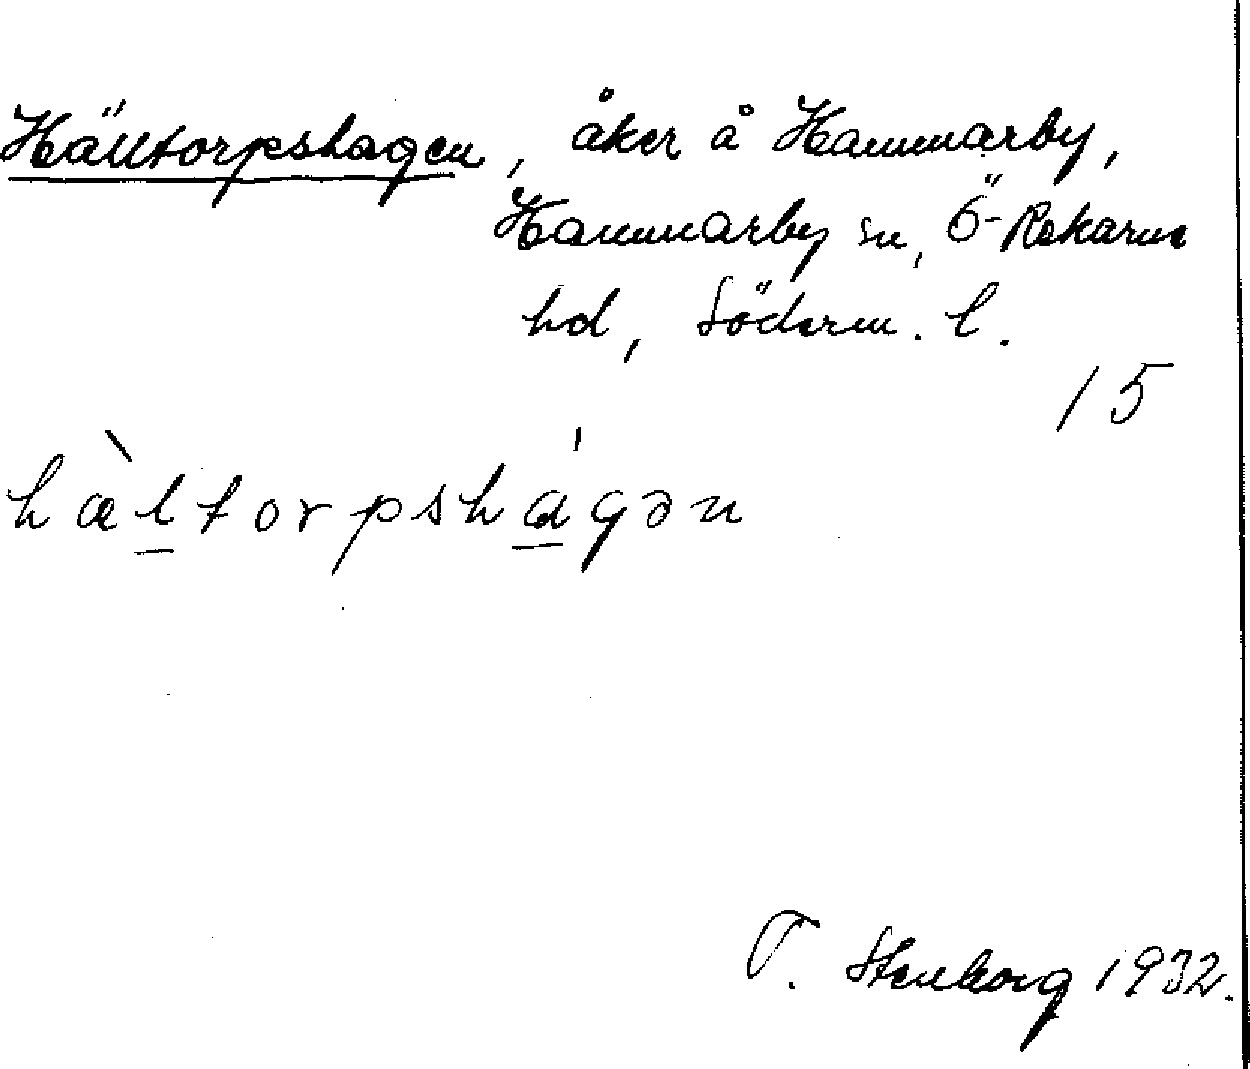 Hälltorpshagen, åker å Hammarby,
Hammarby sn, Ö-Rekarne
hd, Söderm. l.
15
hæ̀ltorpshágən
T. Stenborg 1932.